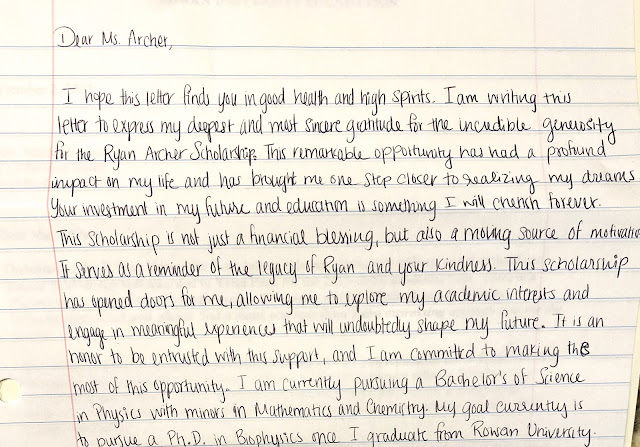 Dear Ms. Archer,
I hope this letter finds you in good health and high spirits. I am writing this
letter to express my deepest and most sincere gratitude for the incredible generosity
for the Ryan Archer Scholarship. This remarkable opportunity has had a profound
impact on my life and has brought me one step closer to realizing my dreams
Your investment in my future and education is something I will cherish forever.
This scholarship is not just a financial blessing, but also a moving source of motivation
It serves as a reminder of the legacy of Ryan and your kindness. This scholarship
has opened doors for me, allowing me to explore my academic interests and
engage in meaningful experiences that will undoubtedly shape my future. It is an
honor to be entrusted with this support, and I am committed to making the
most of this opportunity. I am currently pursuing a Bachelor's of Science
in Physics with minors in Mathematics and Chemistry. My goal currently is
to pursue a Ph.D. in Biophysics once I graduate from Rowan University.